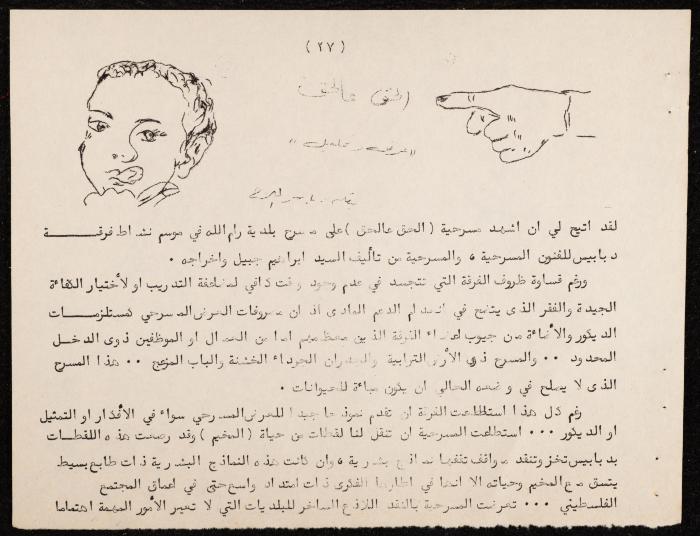 ( ٢٧ )
الحق عالحق
"عرض وتحليل"
بقلم
لقد اتيح لي ان اشهد مسرحية ( الحق عالحق ) على مسرح بلدية رام الله في موسم نشاط فرقة
دبابيس للفنون المسرحية ، والمسرحية من تأليف السيد ابراهيم جبيل واخراجه .
ورغم قساوة ظروف الفرقة التي تتجسد في عدم وجود وقت كافي لمضاعفة التدريب او لأختيار الكفاءة
الجيدة والفقر الذى يتضح في انعدام الدعم المادى اذ ان مصروفات العرض المسرحي كمستلزمات
الديكور والأضاءة من جيوب اعضاء الفرقة الذين معظمهم اما من العمال او الموظفين ذوى الدخل
المحدود .. والمسرح ذوى الأرض الترابية والجدران الجرداء الخشنة والباب المزعج .. هذا المسرح
الذى لا يصلح في وضعه الحالي ان يكون مباءة للحيوانات .
رغم كل هذا استطاعت الفرقة ان تقدم نموذجا جيدا للعرض المسرحي سواء في الأفكار او التمثيل
او الديكور ... استطاعت المسرحية ان تنقل لنا لقطات من حياة ( المخيم ) وقد رصعت هذه اللقطات
بدبابيس تخز وتنقد مواقف تقفها نماذج بشرية ، وان كانت هذه النماذج البشرية ذات طابع بسيط
يتسق مع المخيم وحياته الا انها في اطارها الفكرى ذات امتداد واسع حتى في اعماق المجتمع
الفلسطيني ... تعرضت المسرحية بالنقد اللاذع الساخر للبلديات التي لا تعير الأمور المهمة اهتماما